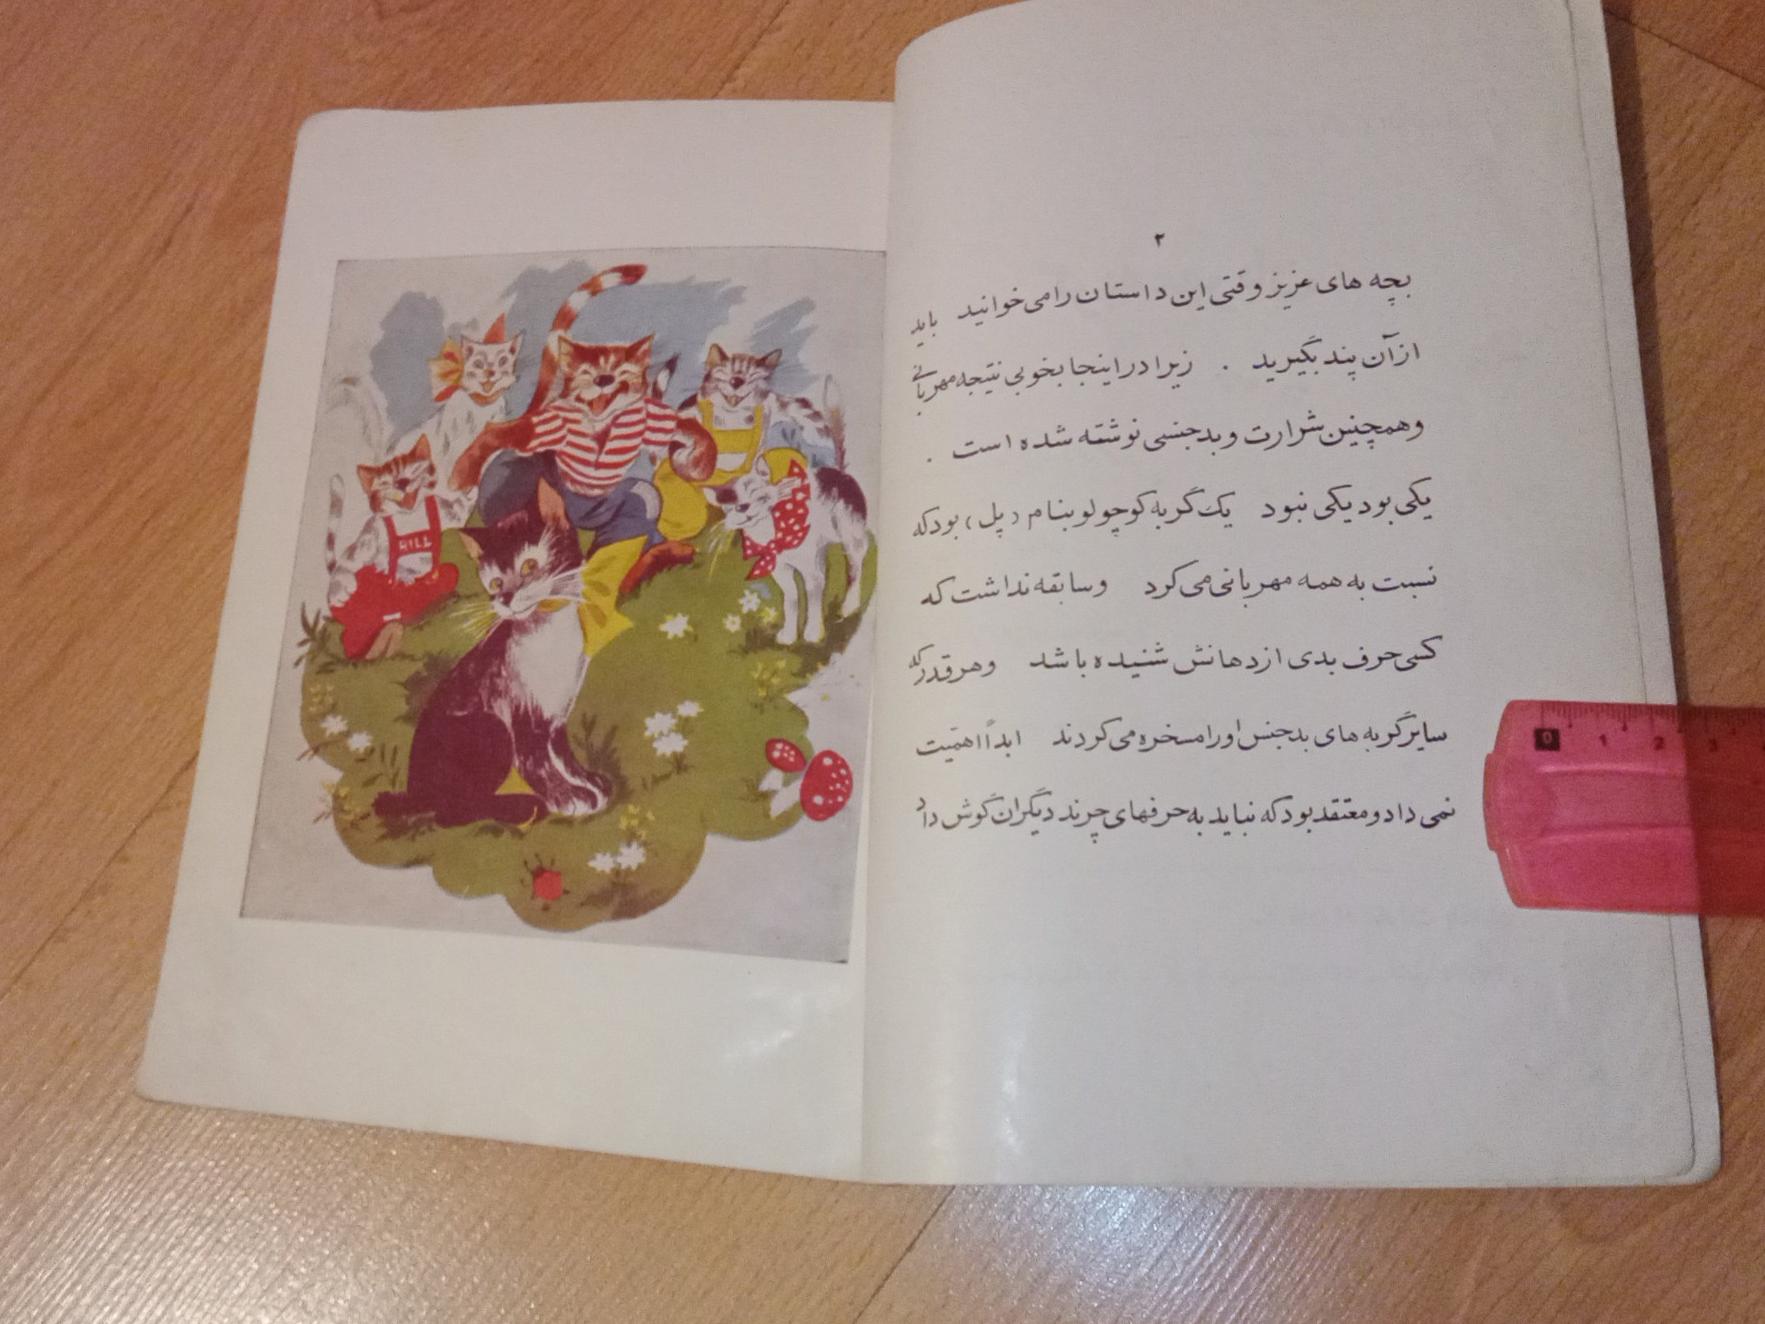 ۲
بچه های عزیز وقتی این داستان را می خوانید باید
از آن پند بگیرید . زیرا در اینجا بخوبی نتیجه مهربانی
و همچنین شرارت و بدجنسی نوشته شده است .
یکی بود یکی نبود یک گربه کوچولو بنام (پل) بود که
نسبت به همه مهربانی می کرد و سابقه نداشت که
کسی حرف بدی از دهانش شنیده باشد و هر قدر که
سایر گربه های بدجنس او را مسخره می کردند ابداً اهمّیت
نمی داد و معتقد بود که نباید به حرفهای چرند دیگران گوش داد
BILL
0 1 2 3